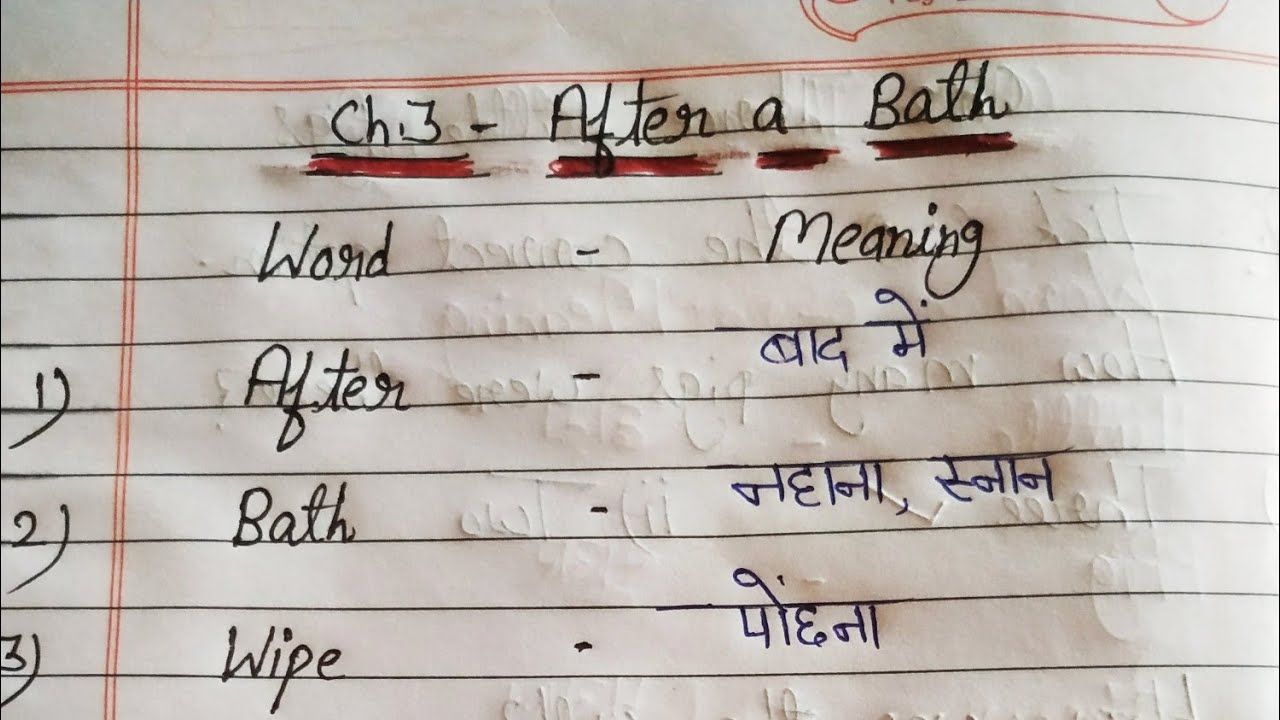 Ch.3 - After a Bath
Word - Meaning
1) After - बाद में
2) Bath - नहाना, स्नान
3) Wipe - पोंछना